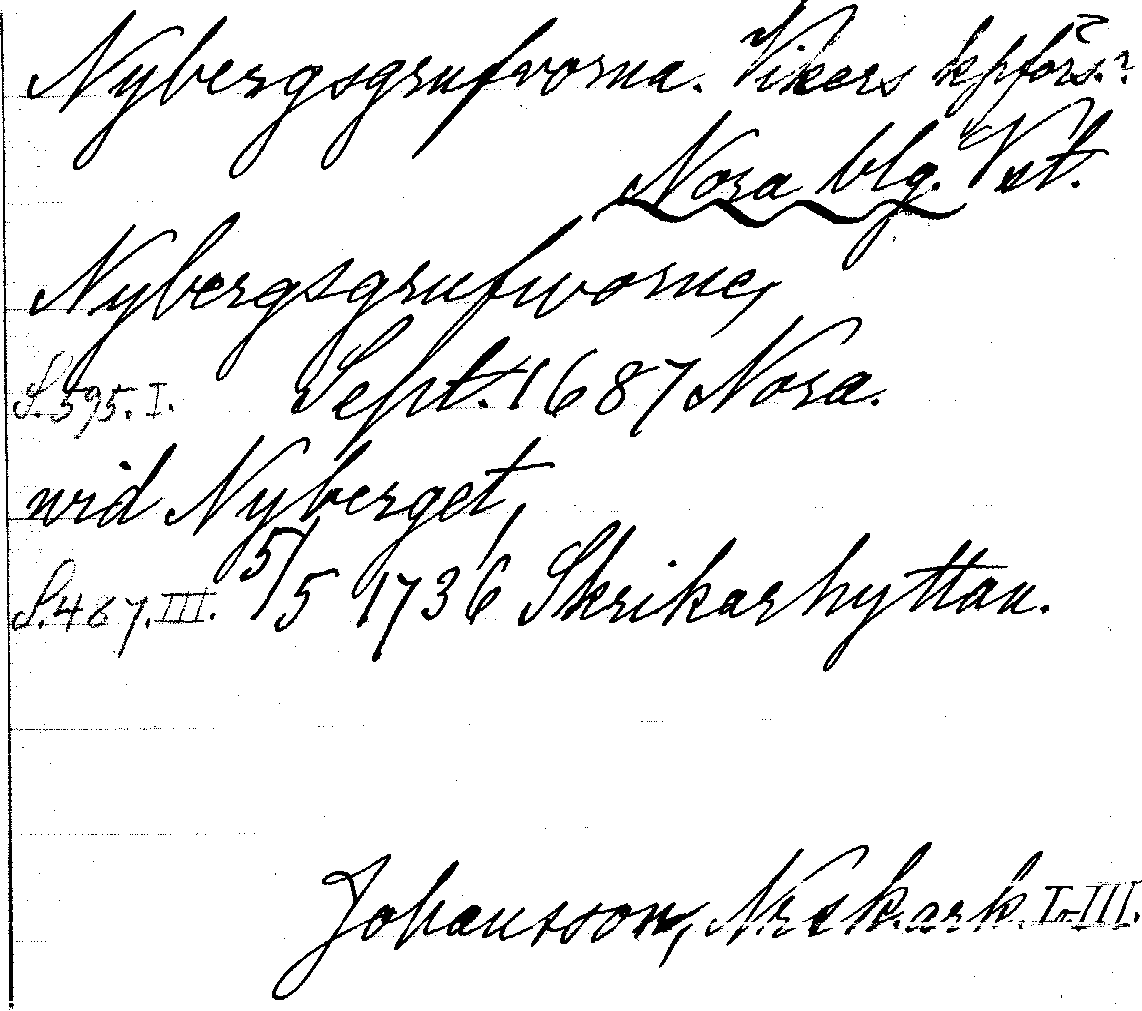 Nybergsgrufvorna. Vikers kpförs.?
Nora blg. Vstm.
Nybergsgrufworne,
S. 595. I. Sept. 1687 Nora.
wid Nyberget,
S. 487. III. 5/5 1736 Skrikarhyttan.
Johansson, Nrsk. ark. I-III.